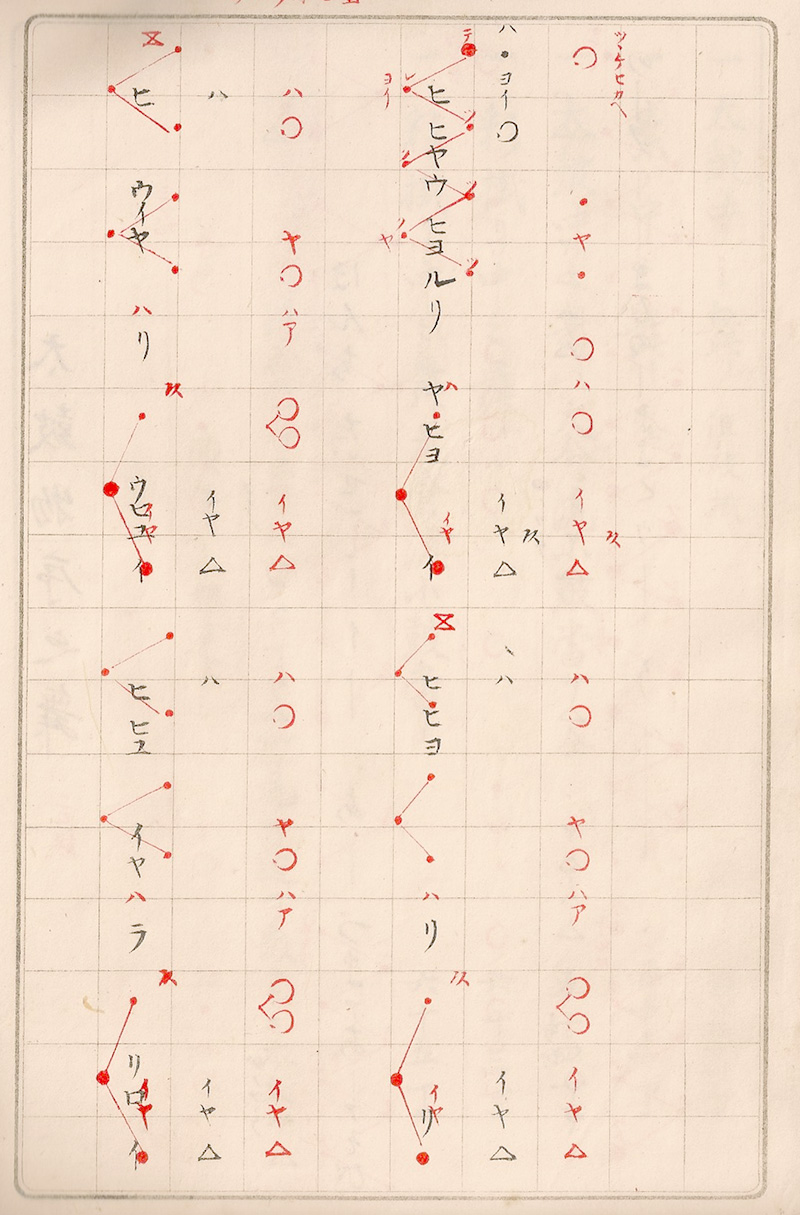 ツヽケヒカヘ
○
・
ヤ
・
○
ハ
○
イヤ △
ハ ○
ヤ ○ ハア
○○
イヤ △
ハ・ヨイ○
イヤ △
ハ
イヤ △
テ
レ
ヨイ
ツ
ツ
ツ
ヤ
ヒヒヤウヒヨルリ
ヤヒヨイ
ハ
イヤ
ヒヒヨ
ハリ
リ
イヤ
ハ ○
ヤ ○ ハア
○○
イヤ △
ハ ○
ヤ ○ ハア
○○
イヤ △
ハ
イヤ △
ハ
イヤ △
ヒ
ウイヤ
ハリ
ウヒユイ
イヤ
ヒヒユ
イヤ
ハラ
リロイ
イヤ